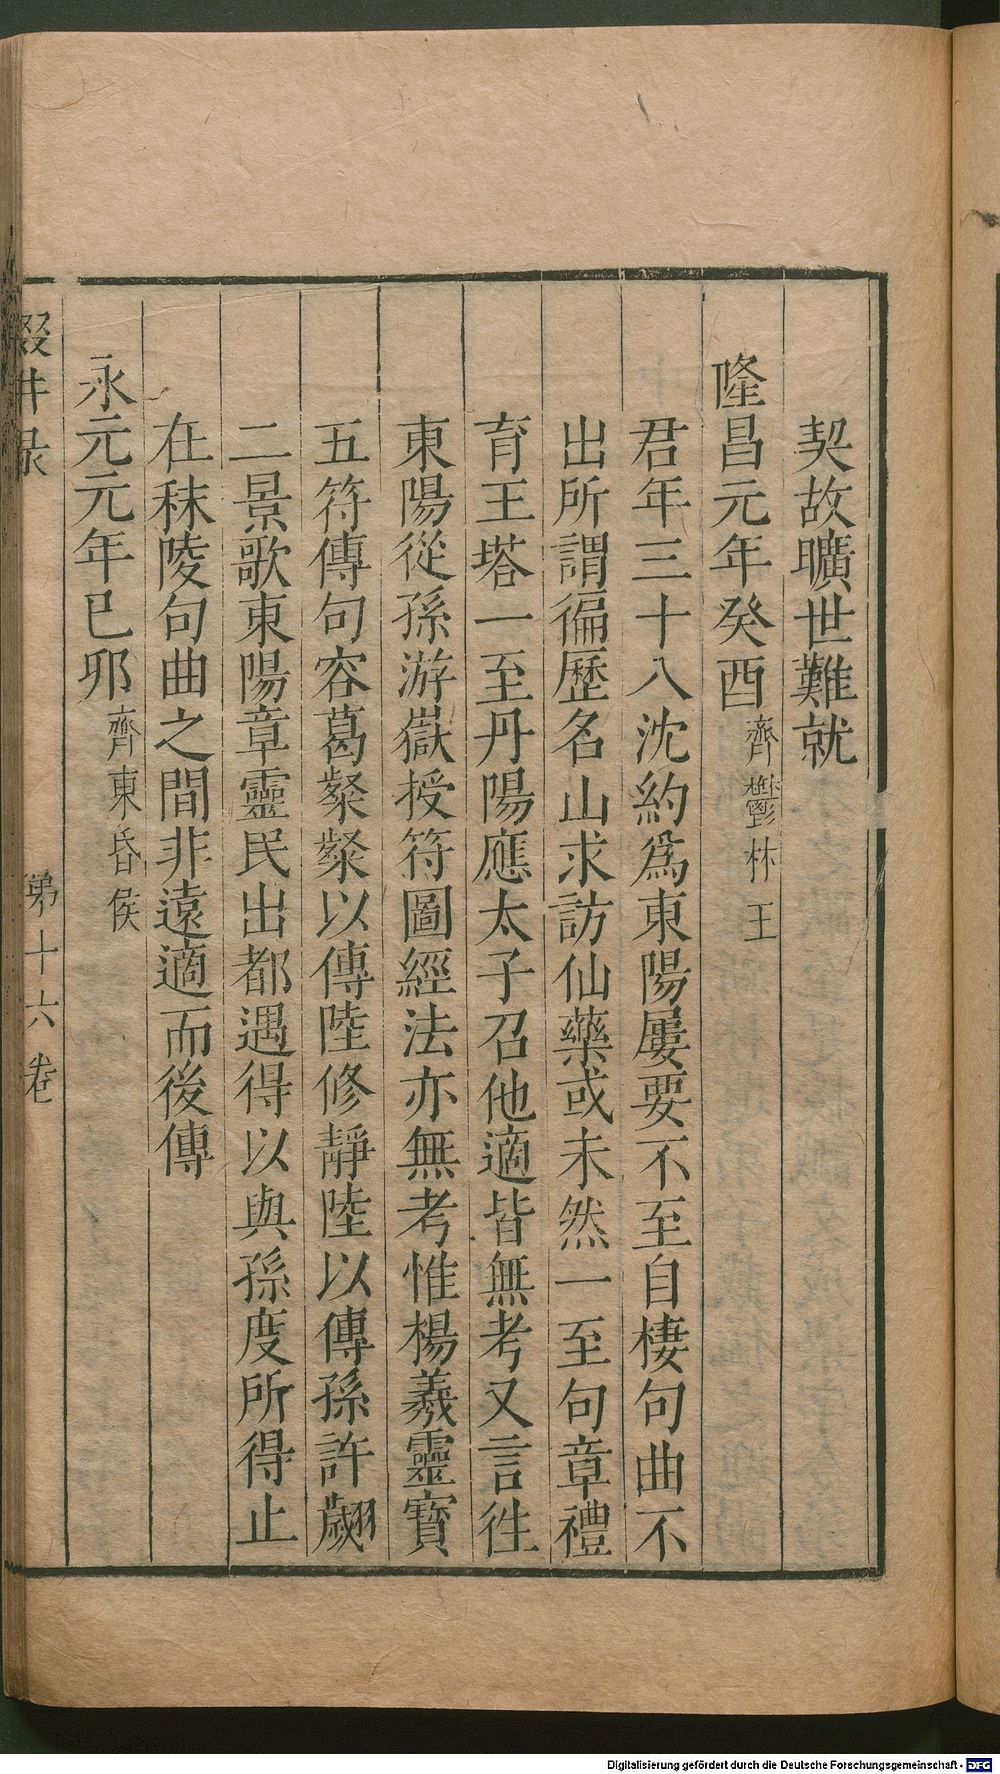 契故曠世難就
隆昌元年癸酉齊鬱林王
君年三十八沈約爲東陽屢要不至自棲句曲不
出所謂徧歷名山求訪仙藥或未然一至句章禮
育王塔一至丹陽應太子召他適皆無考又言徃
東陽從孫游嶽授符圖經法亦無考惟楊羲靈寳
五符傳句容葛粲粲以傳陸修靜陸以傳孫許翽
二景歌東陽章靈民出都遇得以與孫度所得止
在秣陵句曲之間非遠適而後傳
永元元年巳夘齊東昏侯
第十六卷
Digitalisierung gefördert durch die Deutsche Forschungsgemeinschaft - DFG